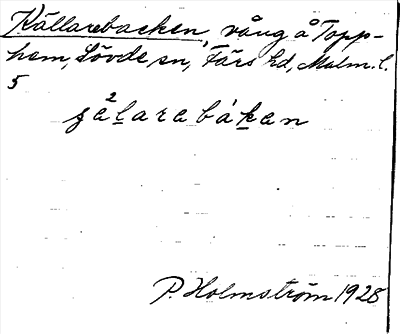 Källarebacken, vång å Topp-
hem, Lövde sn, Färs hd, Malm. l.
5
²
P. Holmström 1928